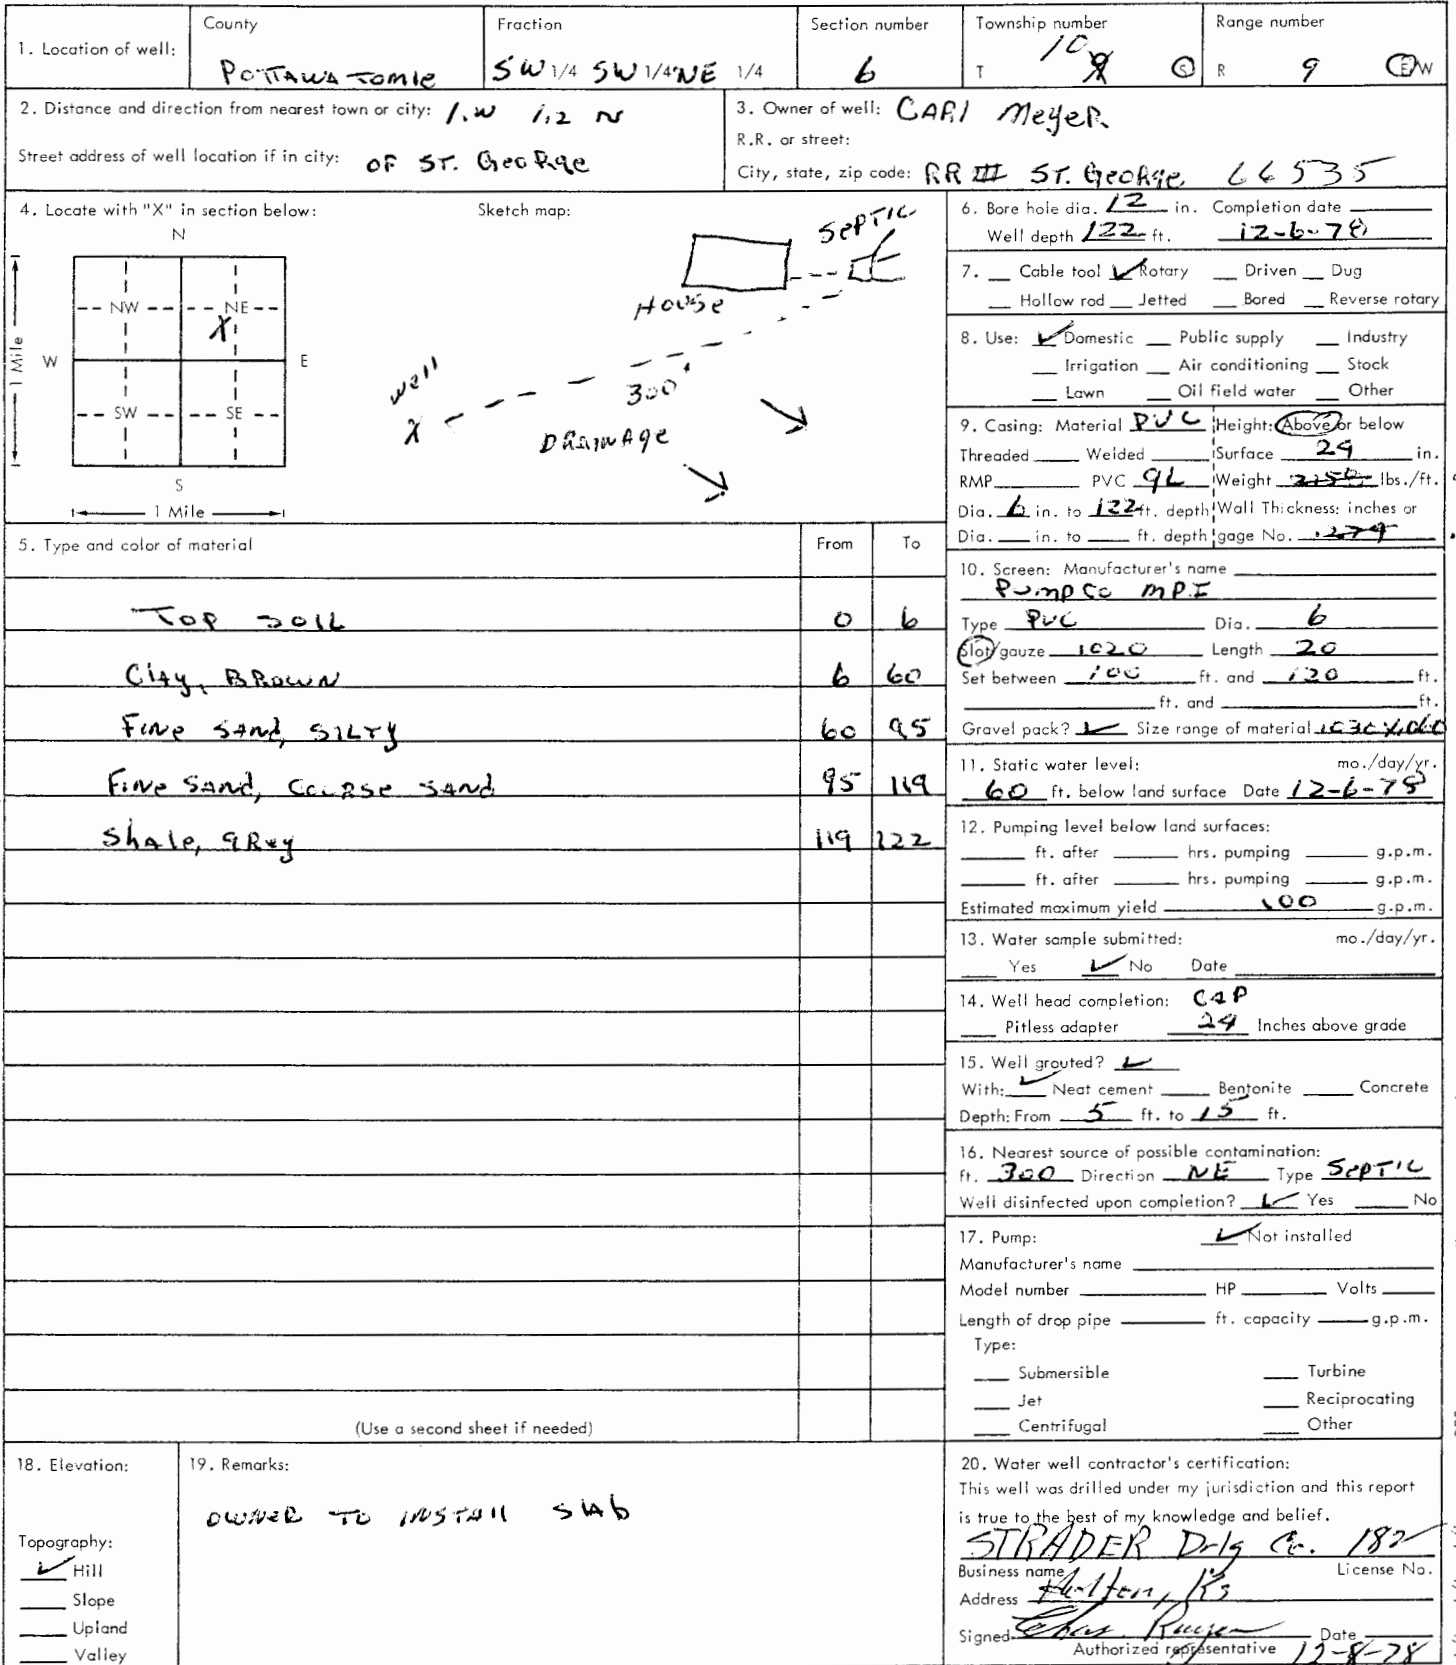 1. Location of well: County Fraction Section number Township number Range number
POTTAWATOMIE SW 1/4 SW 1/4 NE 1/4 6 T 10 S R 9 E/W
2. Distance and direction from nearest town or city: 1.W 1.2 N
Street address of well location if in city: OF ST. GeoRge
3. Owner of well: CARl MeyeR
R.R. or street:
City, state, zip code: RR III ST. GeoRge 66535
4. Locate with "X" in section below:
Sketch map:
N
NW NE
X
W E
SW SE
S
1 Mile
1 Mile
SEPTIC
HOUSE
well
X
300'
DRAINAGE
5. Type and color of material From To
TOP SOIL 0 6
ClAy, BROWN 6 60
FINe SANd, SILTY 60 95
FINe SANd, COURSe SANd 95 119
ShAle, gRey 119 122
(Use a second sheet if needed)
6. Bore hole dia. 12 in. Completion date
Well depth 122 ft. 12-6-78
7. Cable tool ✓ Rotary Driven Dug
Hollow rod Jetted Bored Reverse rotary
8. Use: ✓ Domestic Public supply Industry
Irrigation Air conditioning Stock
Lawn Oil field water Other
9. Casing: Material PVC Height: Above or below
Threaded Welded Surface 24 in.
RMP PVC gL Weight lbs./ft.
Dia. 6 in. to 122 ft. depth Wall Thickness: inches or
Dia. in. to ft. depth gage No.
10. Screen: Manufacturer's name
Pump Co MPI
Type PVC Dia. 6
Slot/gauze Length 20
Set between 100 ft. and 120 ft.
ft. and ft.
Gravel pack? ✓ Size range of material
11. Static water level: mo./day/yr.
60 ft. below land surface Date 12-6-78
12. Pumping level below land surfaces:
ft. after hrs. pumping g.p.m.
ft. after hrs. pumping g.p.m.
Estimated maximum yield 100 g.p.m.
13. Water sample submitted: mo./day/yr.
Yes ✓ No Date
14. Well head completion: CAP
Pitless adapter 24 Inches above grade
15. Well grouted? ✓
With: ✓ Neat cement Bentonite Concrete
Depth: From 5 ft. to 15 ft.
16. Nearest source of possible contamination:
ft. 300 Direction NE Type SepTIC
Well disinfected upon completion? ✓ Yes No
17. Pump: ✓ Not installed
Manufacturer's name
Model number HP Volts
Length of drop pipe ft. capacity g.p.m.
Type:
Submersible Turbine
Jet Reciprocating
Centrifugal Other
18. Elevation:
Topography:
✓ Hill
Slope
Upland
Valley
19. Remarks:
OWNER TO INSTAll SlAb
20. Water well contractor's certification:
This well was drilled under my jurisdiction and this report
is true to the best of my knowledge and belief.
STRADER Drlg Co. 182
Business name License No.
Address Holton, Ks
Signed Chas. Date
Authorized representative 12-8-78